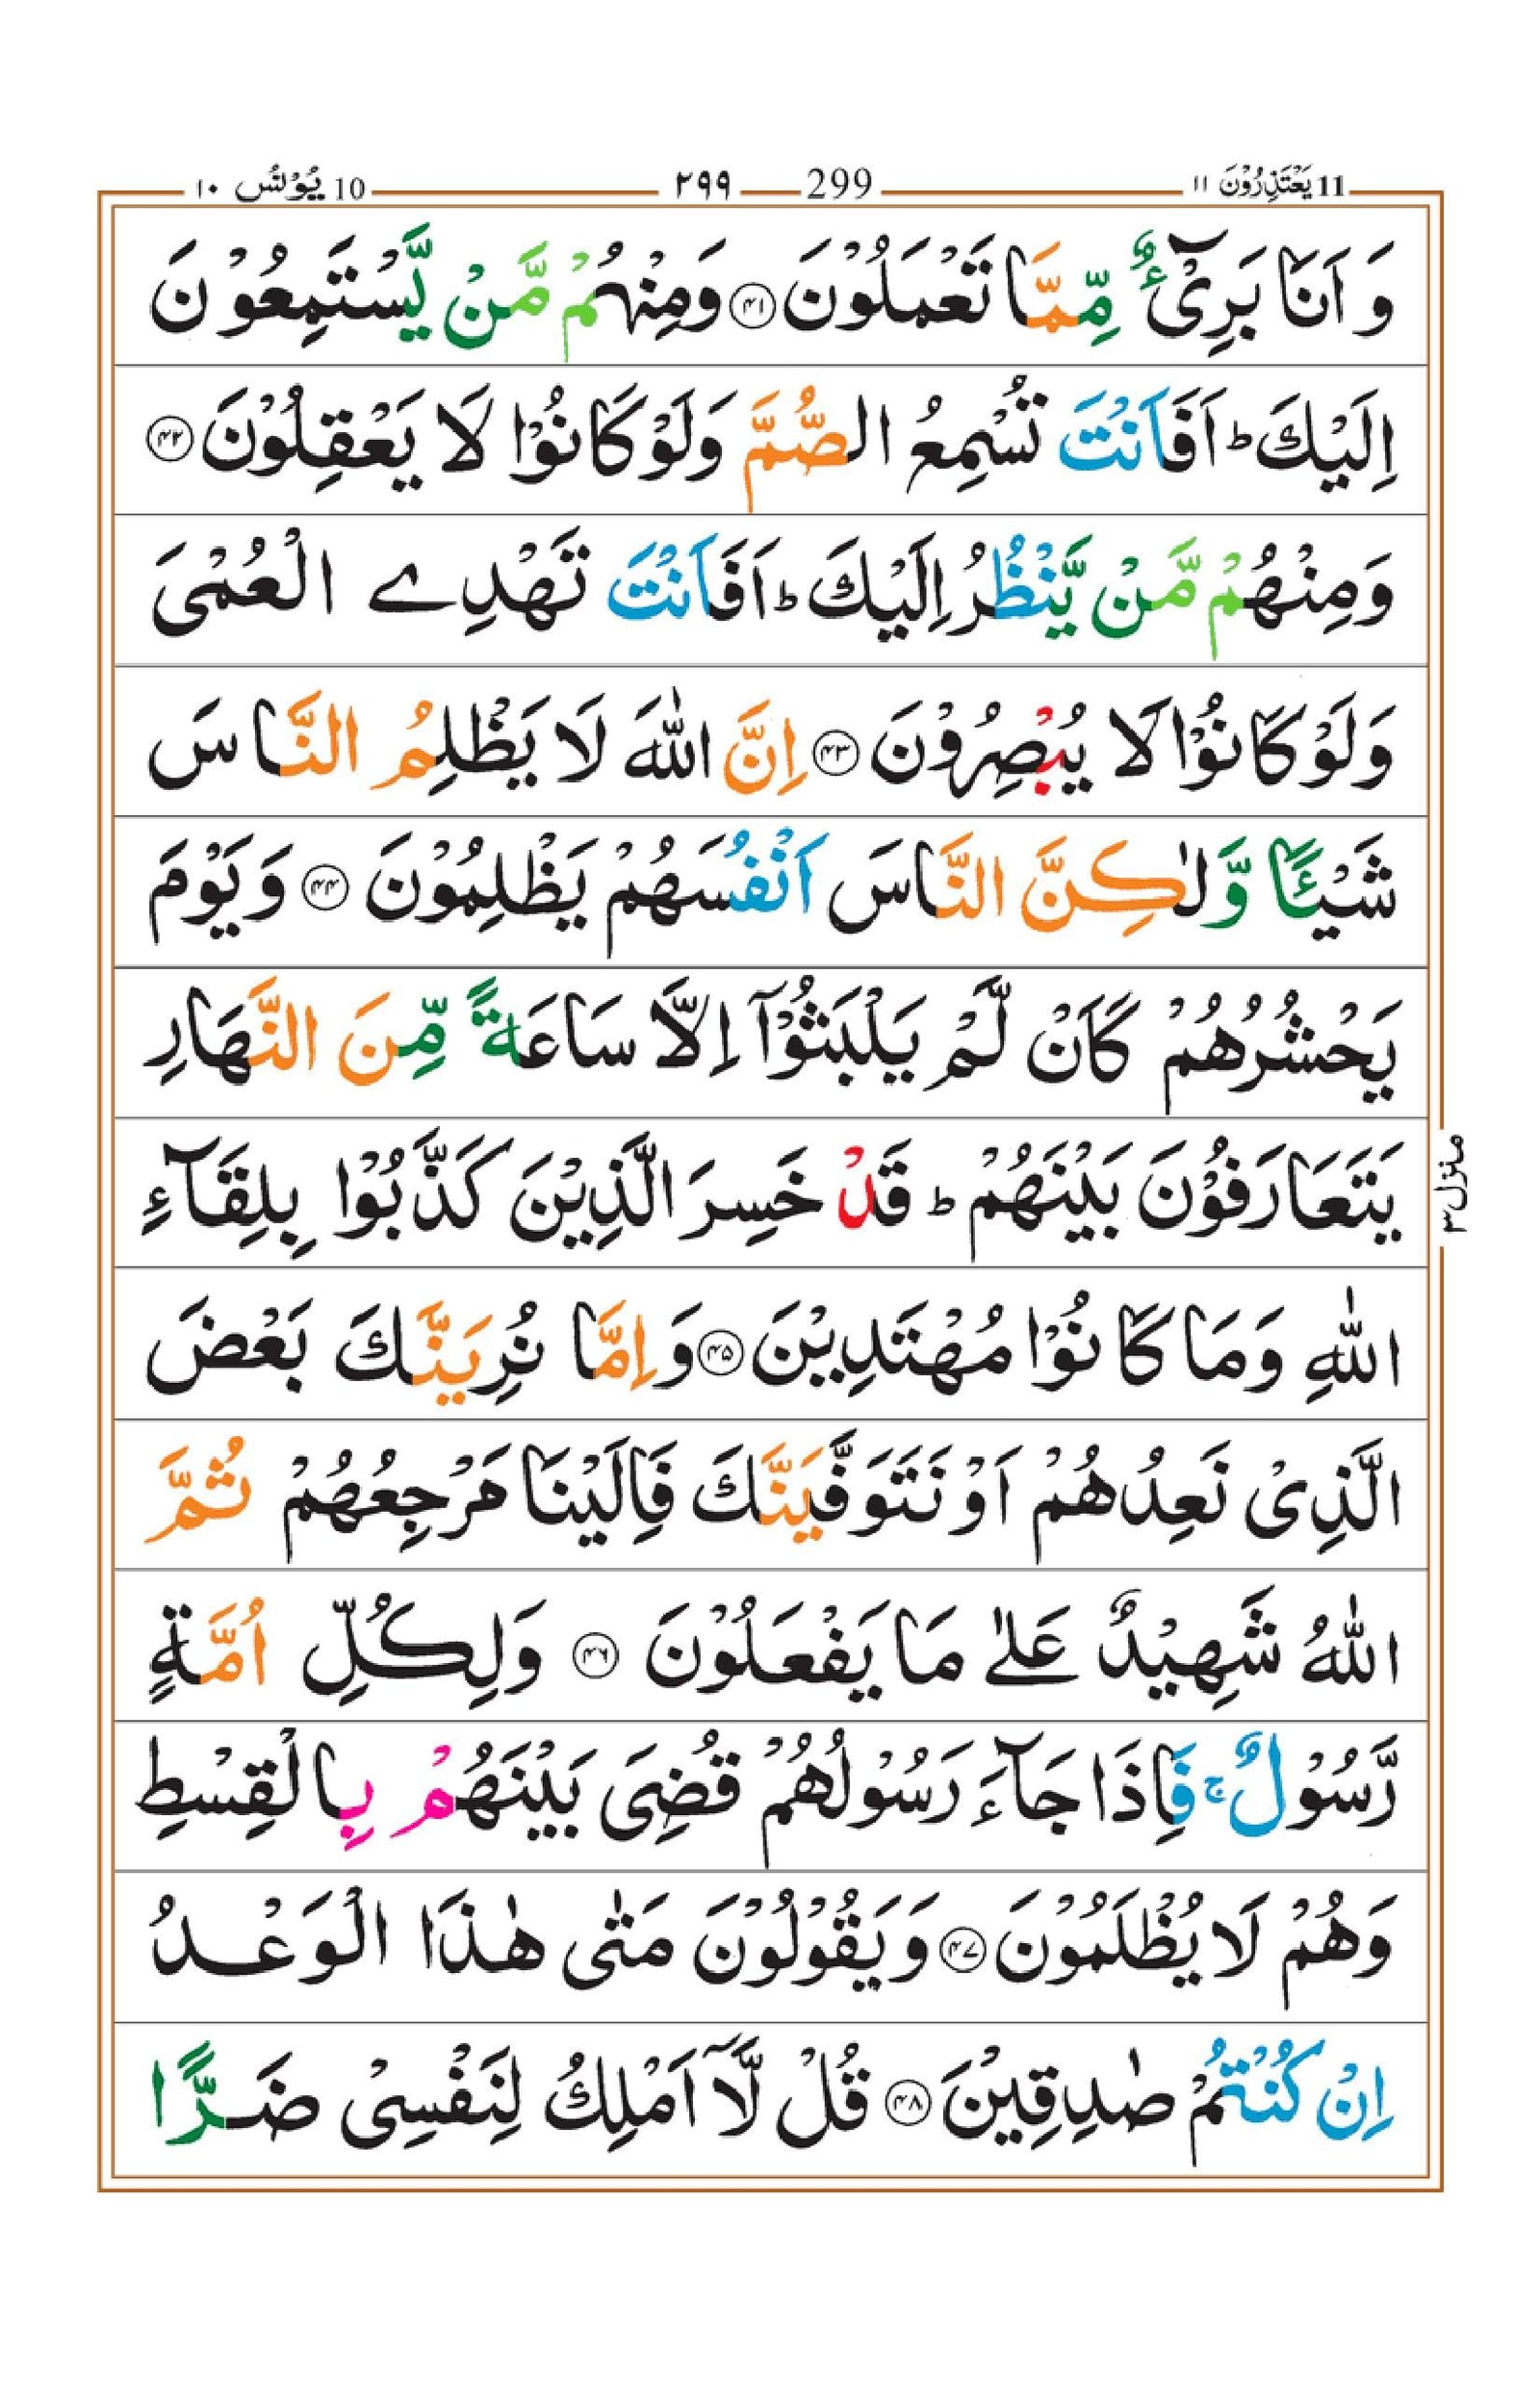 11 یَعْتَذِرُوْنَ ۱۱ 299 ۲۹۹ 10 یُوْنُس ۱۰
وَ اَنَا بَرِیْٓءٌ مِّمَّا تَعْمَلُوْنَ ۝۴۱ وَمِنْهُمْ مَّنْ یَّسْتَمِعُوْنَ
اِلَیْكَ ؕ اَفَاَنْتَ تُسْمِعُ الصُّمَّ وَلَوْ كَانُوْا لَا یَعْقِلُوْنَ ۝۴۲
وَمِنْهُمْ مَّنْ یَّنْظُرُ اِلَیْكَ ؕ اَفَاَنْتَ تَهْدِے الْعُمْیَ
وَلَوْ كَانُوْا لَا یُبْصِرُوْنَ ۝۴۳ اِنَّ اللّٰهَ لَا یَظْلِمُ النَّاسَ
شَیْئًا وَّلٰكِنَّ النَّاسَ اَنْفُسَهُمْ یَظْلِمُوْنَ ۝۴۴ وَیَوْمَ
یَحْشُرُهُمْ كَاَنْ لَّمْ یَلْبَثُوْۤا اِلَّا سَاعَةً مِّنَ النَّهَارِ
یَتَعَارَفُوْنَ بَیْنَهُمْ ؕ قَدْ خَسِرَ الَّذِیْنَ كَذَّبُوْا بِلِقَآءِ
اللّٰهِ وَمَا كَانُوْا مُهْتَدِیْنَ ۝۴۵ وَاِمَّا نُرِیَنَّكَ بَعْضَ
الَّذِیْ نَعِدُهُمْ اَوْ نَتَوَفَّیَنَّكَ فَاِلَیْنَا مَرْجِعُهُمْ ثُمَّ
اللّٰهُ شَهِیْدٌ عَلٰی مَا یَفْعَلُوْنَ ۝۴۶ وَلِكُلِّ اُمَّةٍ
رَّسُوْلٌ ۚ فَاِذَا جَآءَ رَسُوْلُهُمْ قُضِیَ بَیْنَهُمْ بِالْقِسْطِ
وَهُمْ لَا یُظْلَمُوْنَ ۝۴۷ وَیَقُوْلُوْنَ مَتٰی هٰذَا الْوَعْدُ
اِنْ كُنْتُمْ صٰدِقِیْنَ ۝۴۸ قُلْ لَّاۤ اَمْلِكُ لِنَفْسِیْ ضَرًّا
منزل ۳